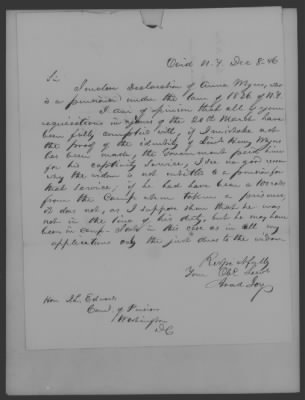 Ovid N.Y. Dec 8. 46
Sir
I enclose Declaration of Anna Myers, who
is a pensioner under the law of 1836 of N.Y.
I am of opinion that all of your
requisitions in yours of the 20th March have
been fully complied with, if I mistake not
the proof of the identity of Lieut Henry Myers
has been made, the Government paid him
for his captivity service, I see no good reason
why the widow is not entitled to a pension for
that service; if he had have been a 100 rods
from the Camp when taken a prisoner,
it does not, as I suppose show that he was
not in the line of his duty, but he may have
been in camp. I ask in this case as in all my
applications only the just dues to the widow
Respectfully
Your Obt Servt
Arad Joy
Hon J.L. Edwards
Comr. of Pensions
Washington
D.C.